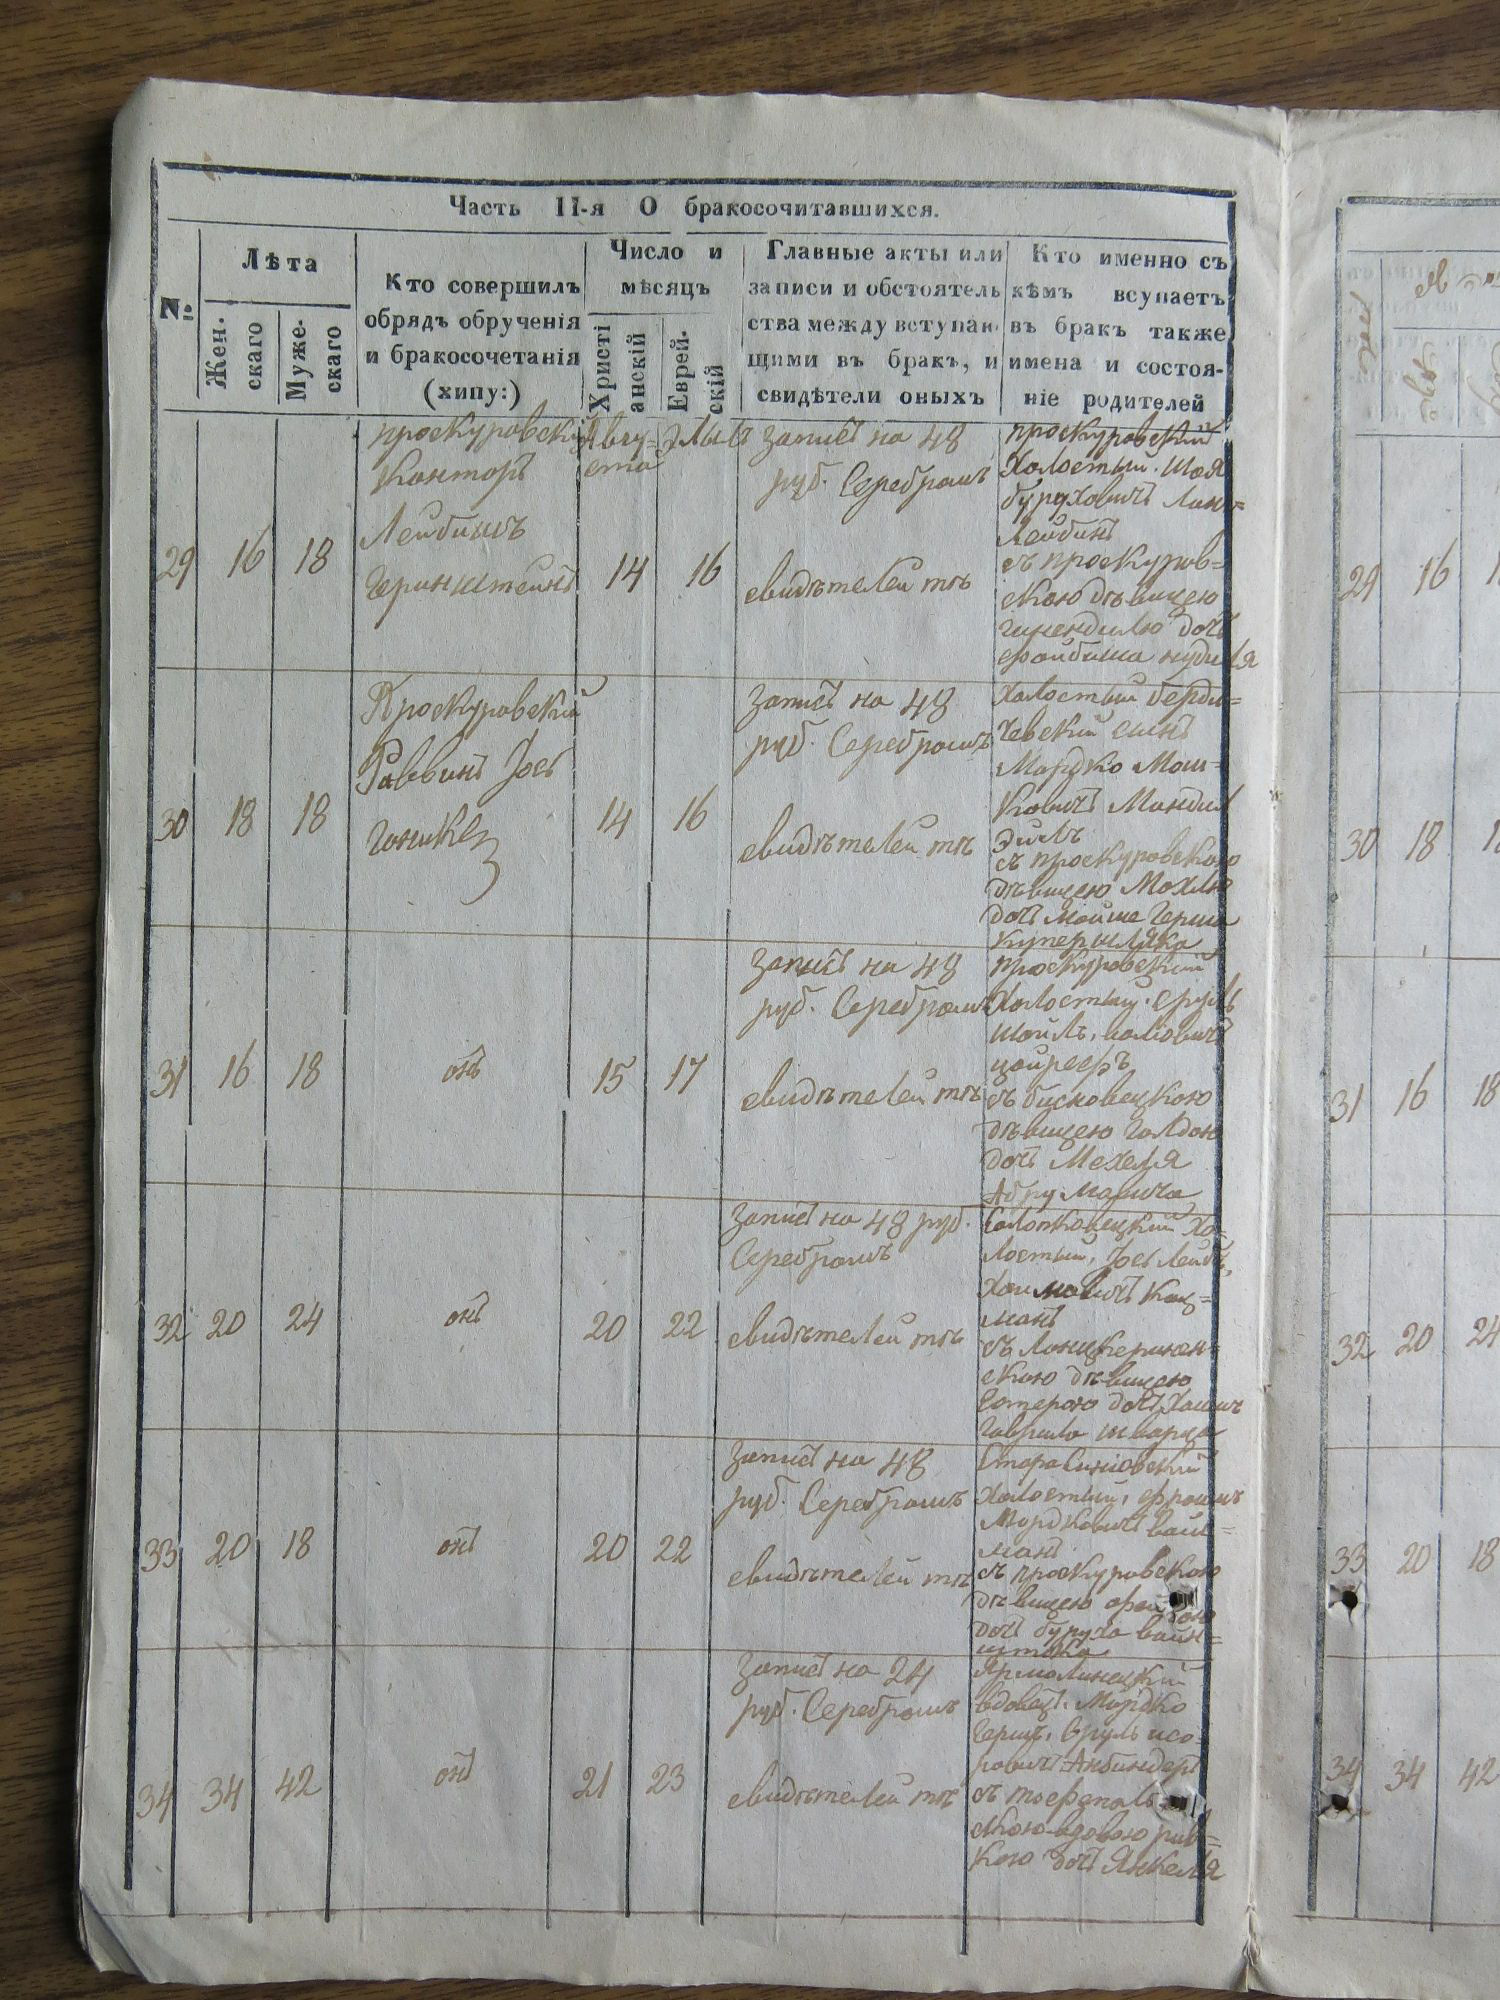 Часть II-я О бракосочитавшихся.
№
Лѣта
Жен-
скаго
Муже-
скаго
Кто совершилъ
обрядъ обрученія
и бракосочетанія
(хипу:)
Число и
мѣсяцъ
Христі
анскій
Еврей-
скій
Главные акты или
записи и обстоятель
ства между вступаю-
щими въ бракъ, и
свидѣтели оныхъ
Кто именно съ
кѣмъ вступаетъ
въ бракъ также
имена и состоя-
ніе родителей
29
16
18
проскуровскій
Канторъ
Лейбишъ
Геринштейнъ
Авгу-
ста
14
Элылъ
16
запись на 48
руб. Серебромъ
свидѣтелей тѣ
проскуровскій
Холостый. Шая
буруховичъ
Лейбинъ
съ проскуров=
скою дѣвицею
дочь
30
18
18
Проскуровскій
Раввинъ Іось
14
16
запись на 48
руб. Серебромъ
свидѣтелей тѣ
Холостый берди=
чевскій сынъ
Мордко Мош=
ковичъ
съ проскуровскою
дѣвицею Мохлю
дочь Мойше Герша
31
16
18
онъ
15
17
запись на 48
руб. Серебромъ
свидѣтелей тѣ
проскуровскій
Холостый. Сруль
цойрефъ
съ
дѣвицею Голдою
дочь Мехеля
Абрумовича
32
20
24
онъ
20
22
запись на 48 руб.
Серебромъ
свидѣтелей тѣ
Хо=
лостый, Іось Лейбъ,
Хаимовичъ Кац=
манъ
съ
скою дѣвицею
Естерою дочь Хаимъ
Гаврило шварца
33
20
18
онъ
20
22
запись на 48
руб. Серебромъ
свидѣтелей тѣ
Старосинювскій
Холостый, Фроимъ
Мордковичъ вай=
манъ
съ проскуровскою
дѣвицею
дочь буруха вайн=
штока
34
34
42
онъ
21
23
запись на 24
руб. Серебромъ
свидѣтелей тѣ
Ярмолинецкій
вдовецъ. Мордко
Гершъ, Сруль исо=
ровичъ Анбиндеръ
съ
скою вдовою рив=
кою дочь Янкеля
29
16
30
18
31
16
18
32
20
24
33
20
18
34
34
42